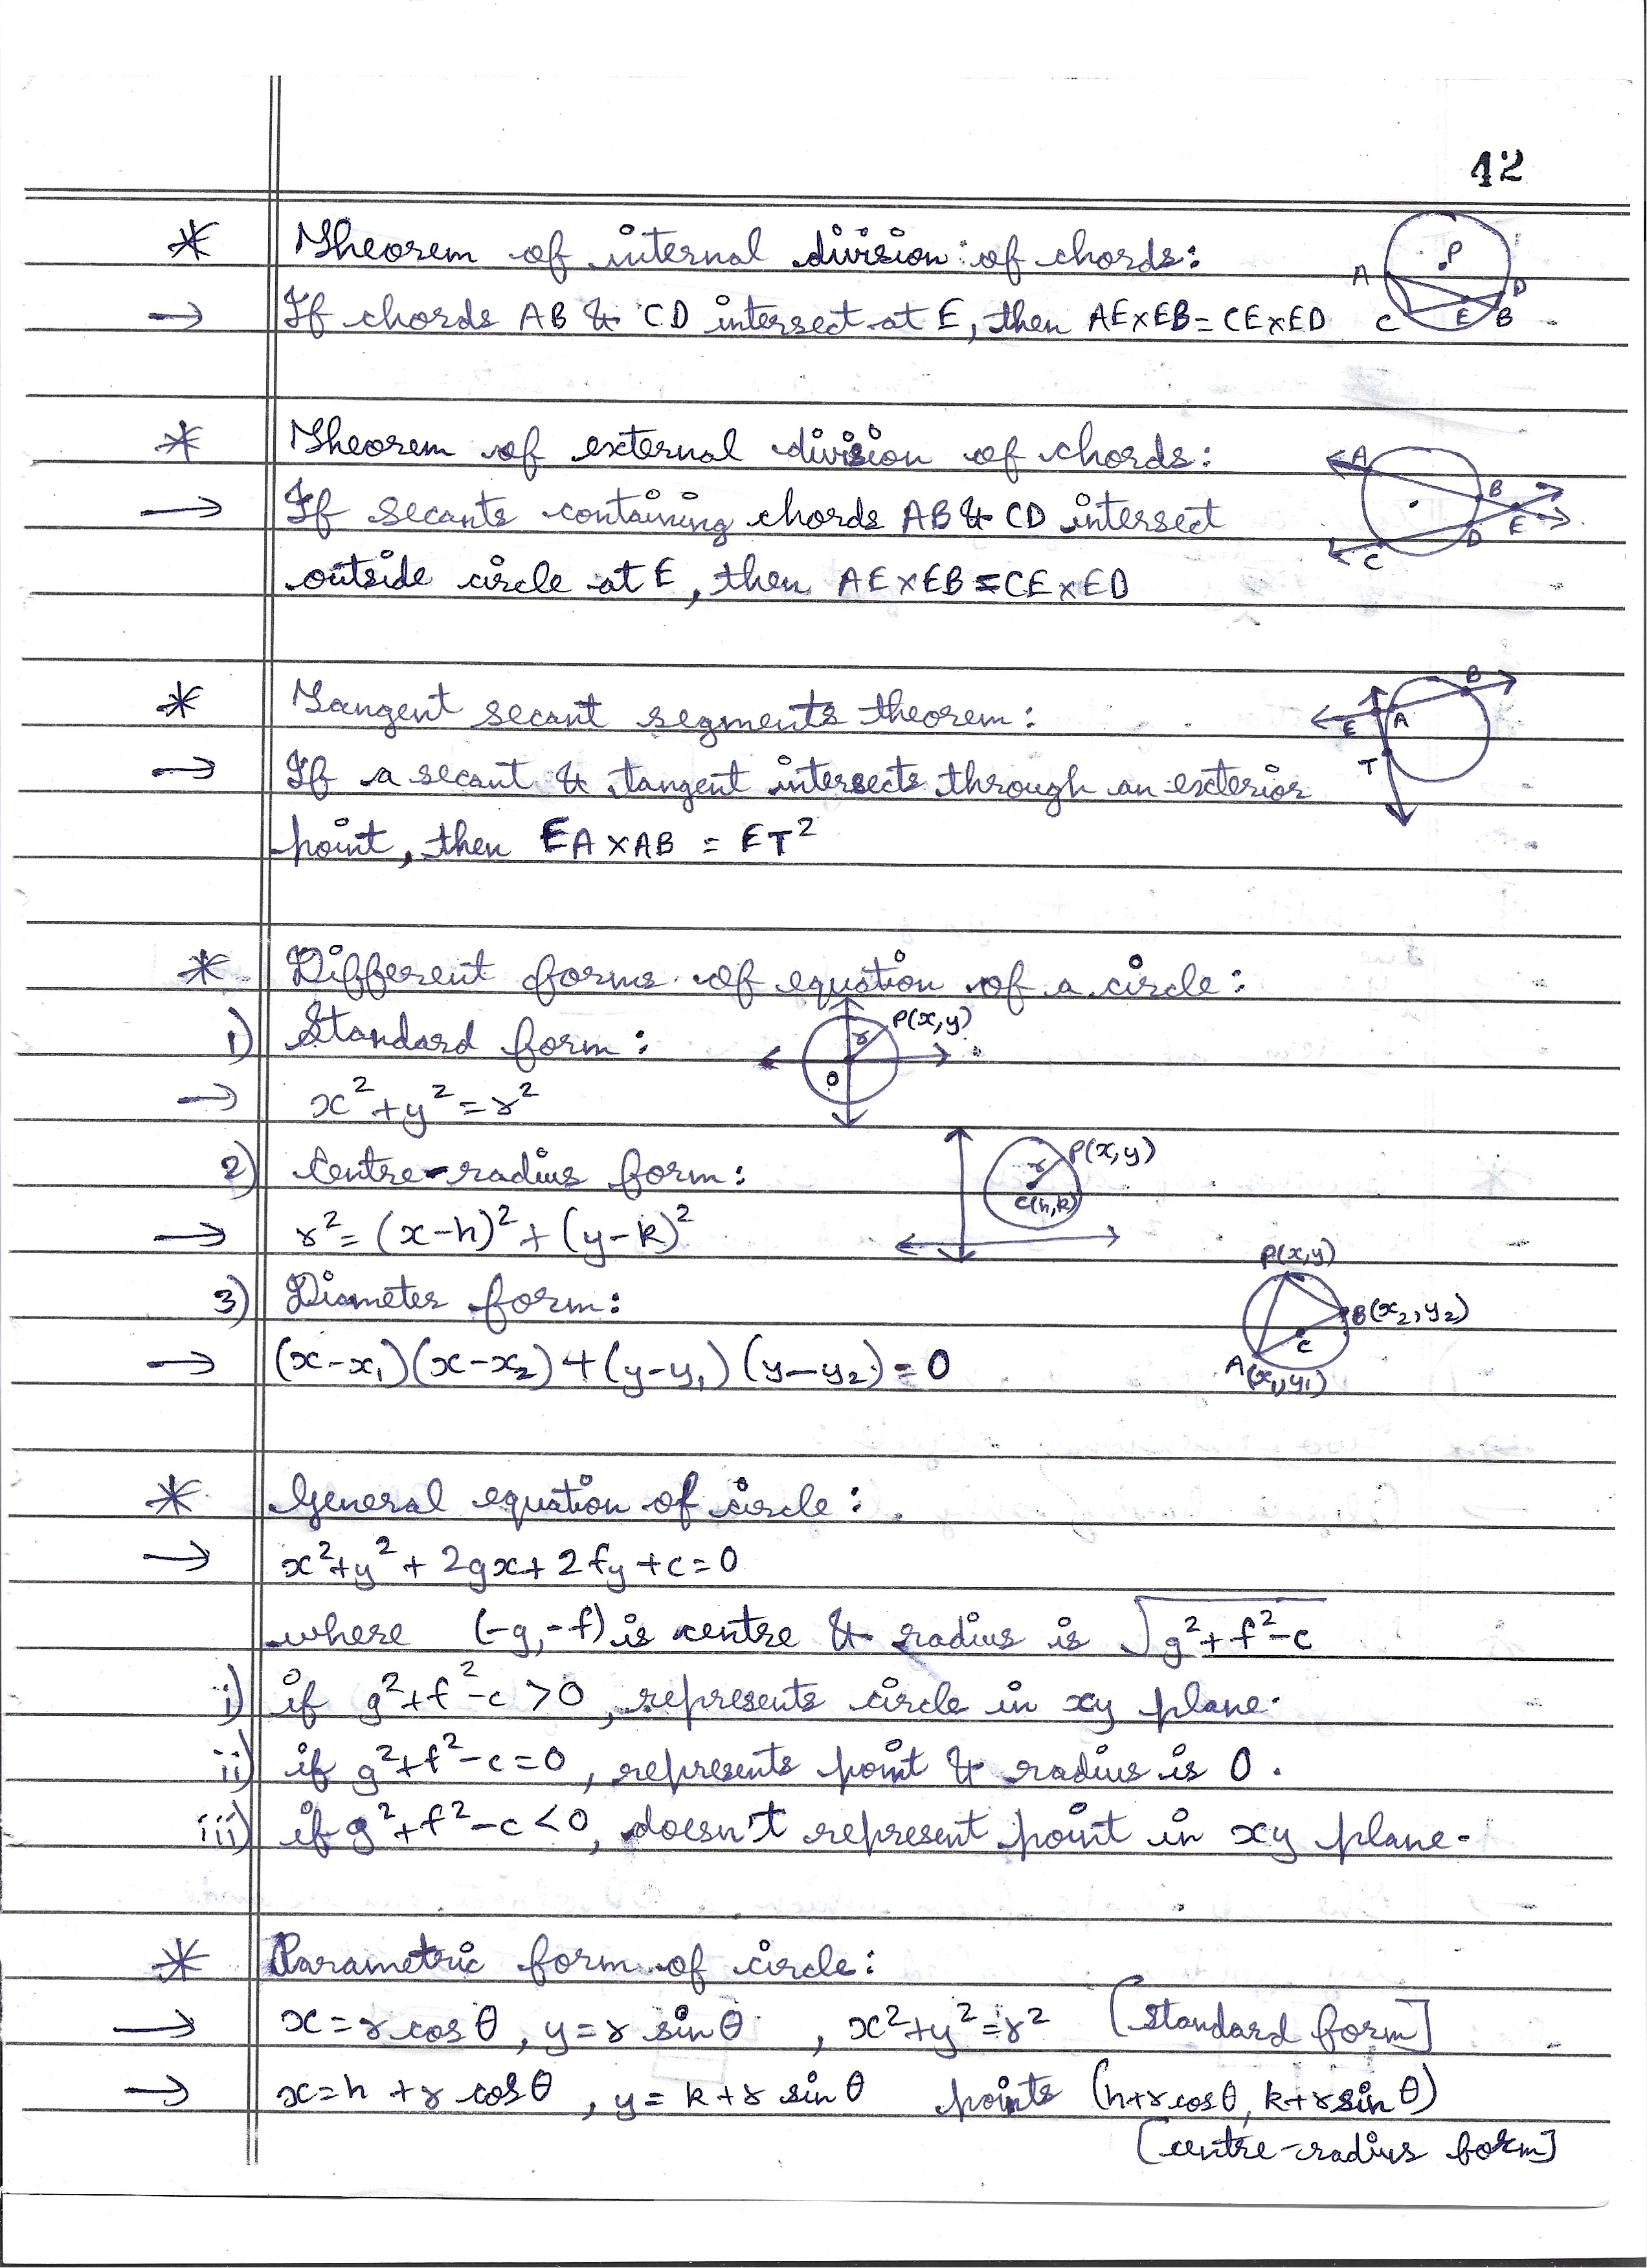 12
* Theorem of internal division of chords:
→ If chords AB & CD intersect at E, then AE×EB = CE×ED
P
A
D
C
E
B
* Theorem of external division of chords:
→ If secants containing chords AB & CD intersect
outside circle at E, then AE×EB = CE×ED
A
B
E
D
C
* Tangent secant segments theorem:
→ If a secant & tangent intersects through an exterior
point, then EA×AB = ET²
B
E
A
T
* Different forms of equation of a circle:
1) Standard form:
P(x,y)
r
O
→ x²+y²=r²
2) Centre-radius form:
P(x,y)
r
C(h,k)
→ r² = (x-h)² + (y-k)²
3) Diameter form:
P(x,y)
B(x₂,y₂)
C
A(x₁,y₁)
→ (x-x₁)(x-x₂)+(y-y₁)(y-y₂)=0
* General equation of circle:
→ x²+y²+2gx+2fy+c=0
where (-g,-f) is centre & radius is √g²+f²-c
i) if g²+f²-c >0, represents circle in xy plane.
ii) if g²+f²-c=0, represents point & radius is 0.
iii) if g²+f²-c<0, doesn't represent point in xy plane.
* Parametric form of circle:
→ x=r cosθ, y=r sinθ , x²+y²=r² [Standard form]
→ x=h+r cosθ, y=k+r sinθ points (h+r cosθ, k+r sinθ)
[centre-radius form]